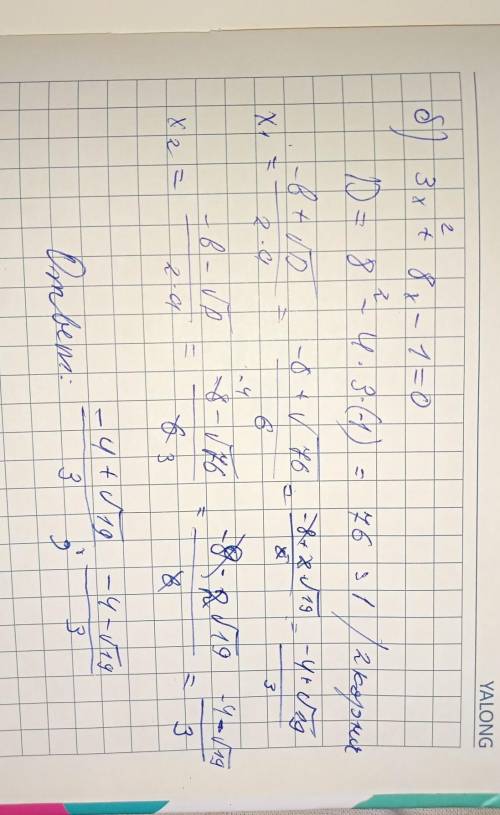 YALONG
б) 3x² + 8x - 1 = 0
D = 8² - 4·3·(-1) = 76 > 1 / 2 корня
x₁ = (-b + √D)/(2·a) = (-8 + √76)/6 = (-8 + 2√19)/6 = (-4 + √19)/3
x₂ = (-b - √D)/(2·a) = (-8 - √76)/6 = (-8 - 2√19)/6 = (-4 - √19)/3
Ответ: (-4 + √19)/3 ; (-4 - √19)/3